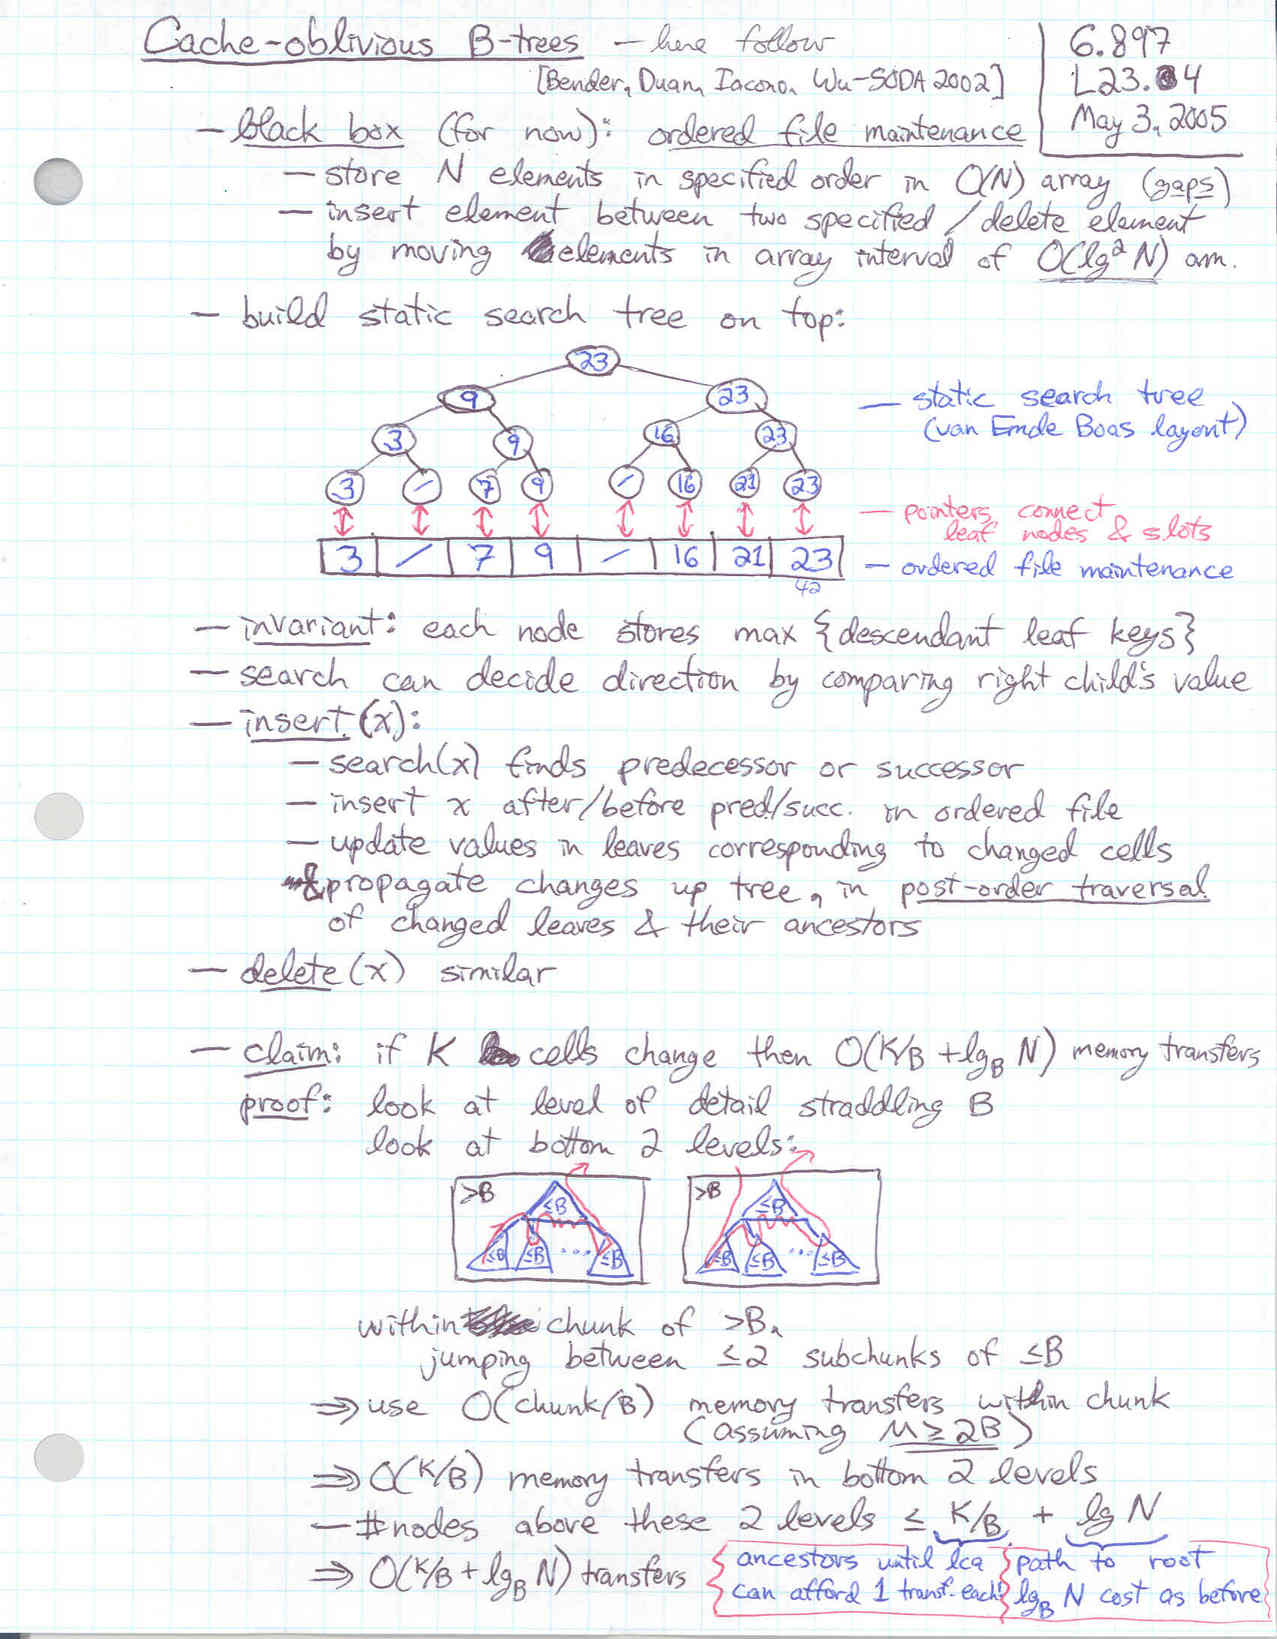 Cache-oblivious B-trees — here follow
[Bender, Duan, Iacono, Wu-SODA 2002]
6.897
L23.4
May 3, 2005
- black box (for now): ordered file maintenance
- store N elements in specified order in O(N) array (gaps)
- insert element between two specified / delete element
by moving elements in array interval of O(lg² N) am.
- build static search tree on top:
23
9 23
3 9 16 23
3 / 7 9 / 16 21 23
- static search tree
(van Emde Boas layout)
- pointers connect
leaf nodes & slots
3 / 7 9 / 16 21 23
42
- ordered file maintenance
- invariant: each node stores max {descendant leaf keys}
- search can decide direction by comparing right child's value
- insert(x):
- search(x) finds predecessor or successor
- insert x after/before pred/succ. in ordered file
- update values in leaves corresponding to changed cells
& propagate changes up tree, in post-order traversal
of changed leaves & their ancestors
- delete(x) similar
- claim: if K cells change then O(K/B + lg_B N) memory transfers
proof: look at level of detail straddling B
look at bottom 2 levels:
>B ≤B ≤B ≤B ... ≤B
>B ≤B ≤B ≤B ... ≤B
within chunk of >B,
jumping between ≤2 subchunks of ≤B
⇒ use O(chunk/B) memory transfers within chunk
(assuming M ≥ 2B)
⇒ O(K/B) memory transfers in bottom 2 levels
- #nodes above these 2 levels ≤ K/B + lg N
ancestors until lca
can afford 1 transf. each!
path to root
lg_B N cost as before
⇒ O(K/B + lg_B N) transfers